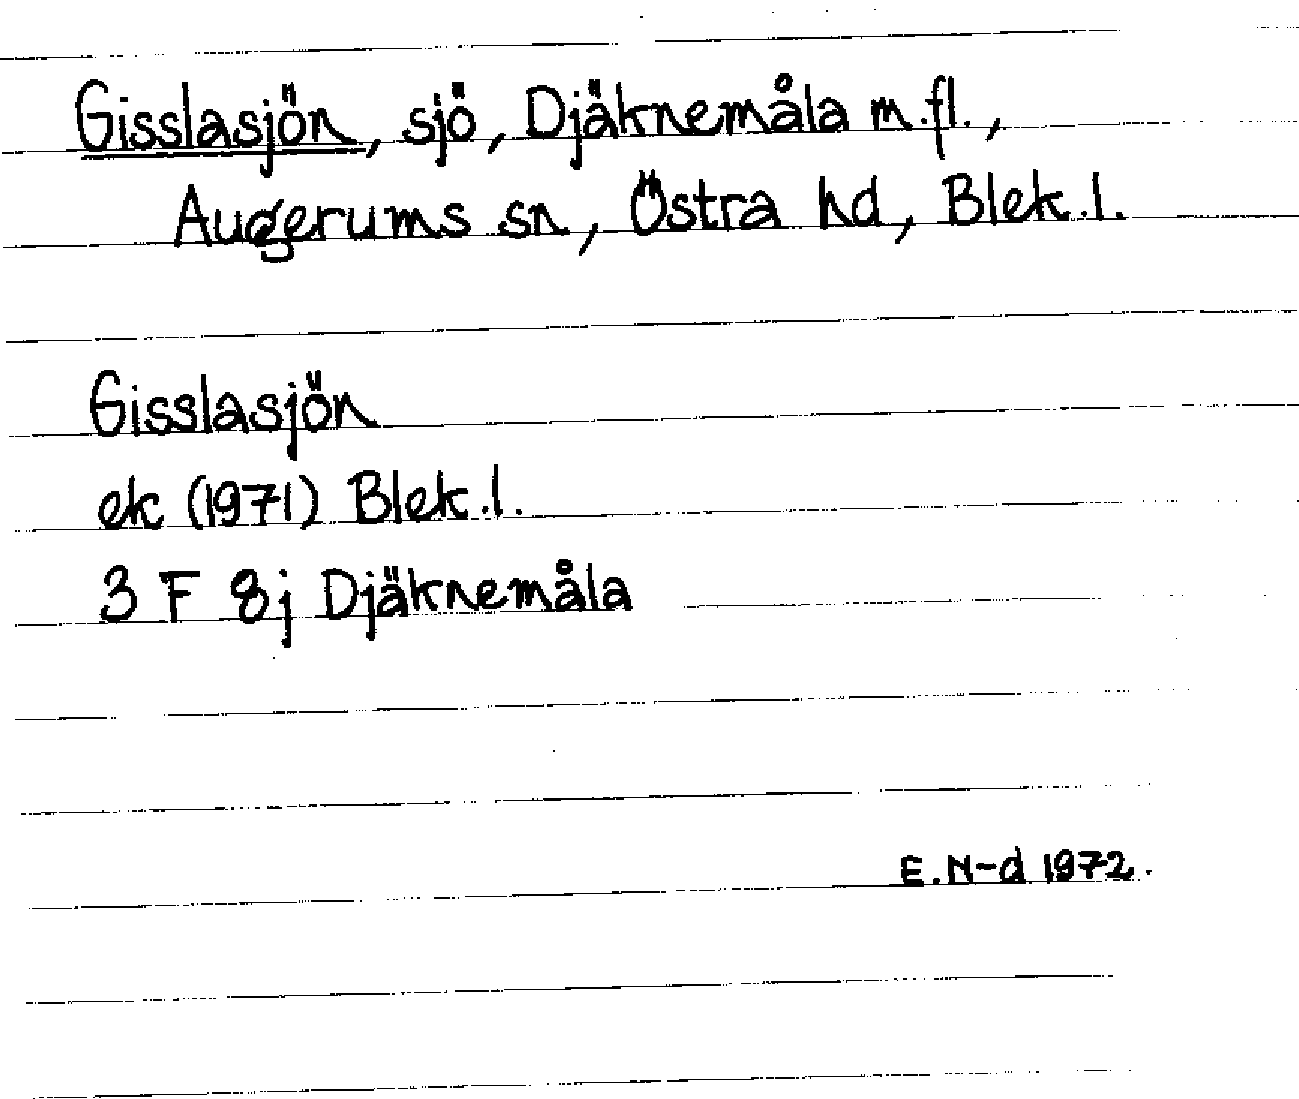 Gisslasjön, sjö, Djäknemåla m.fl.,
Augerums sn, Östra hd, Blek.l.
Gisslasjön
ek (1971) Blek.l.
3 F 8j Djäknemåla
E.N-d 1972.